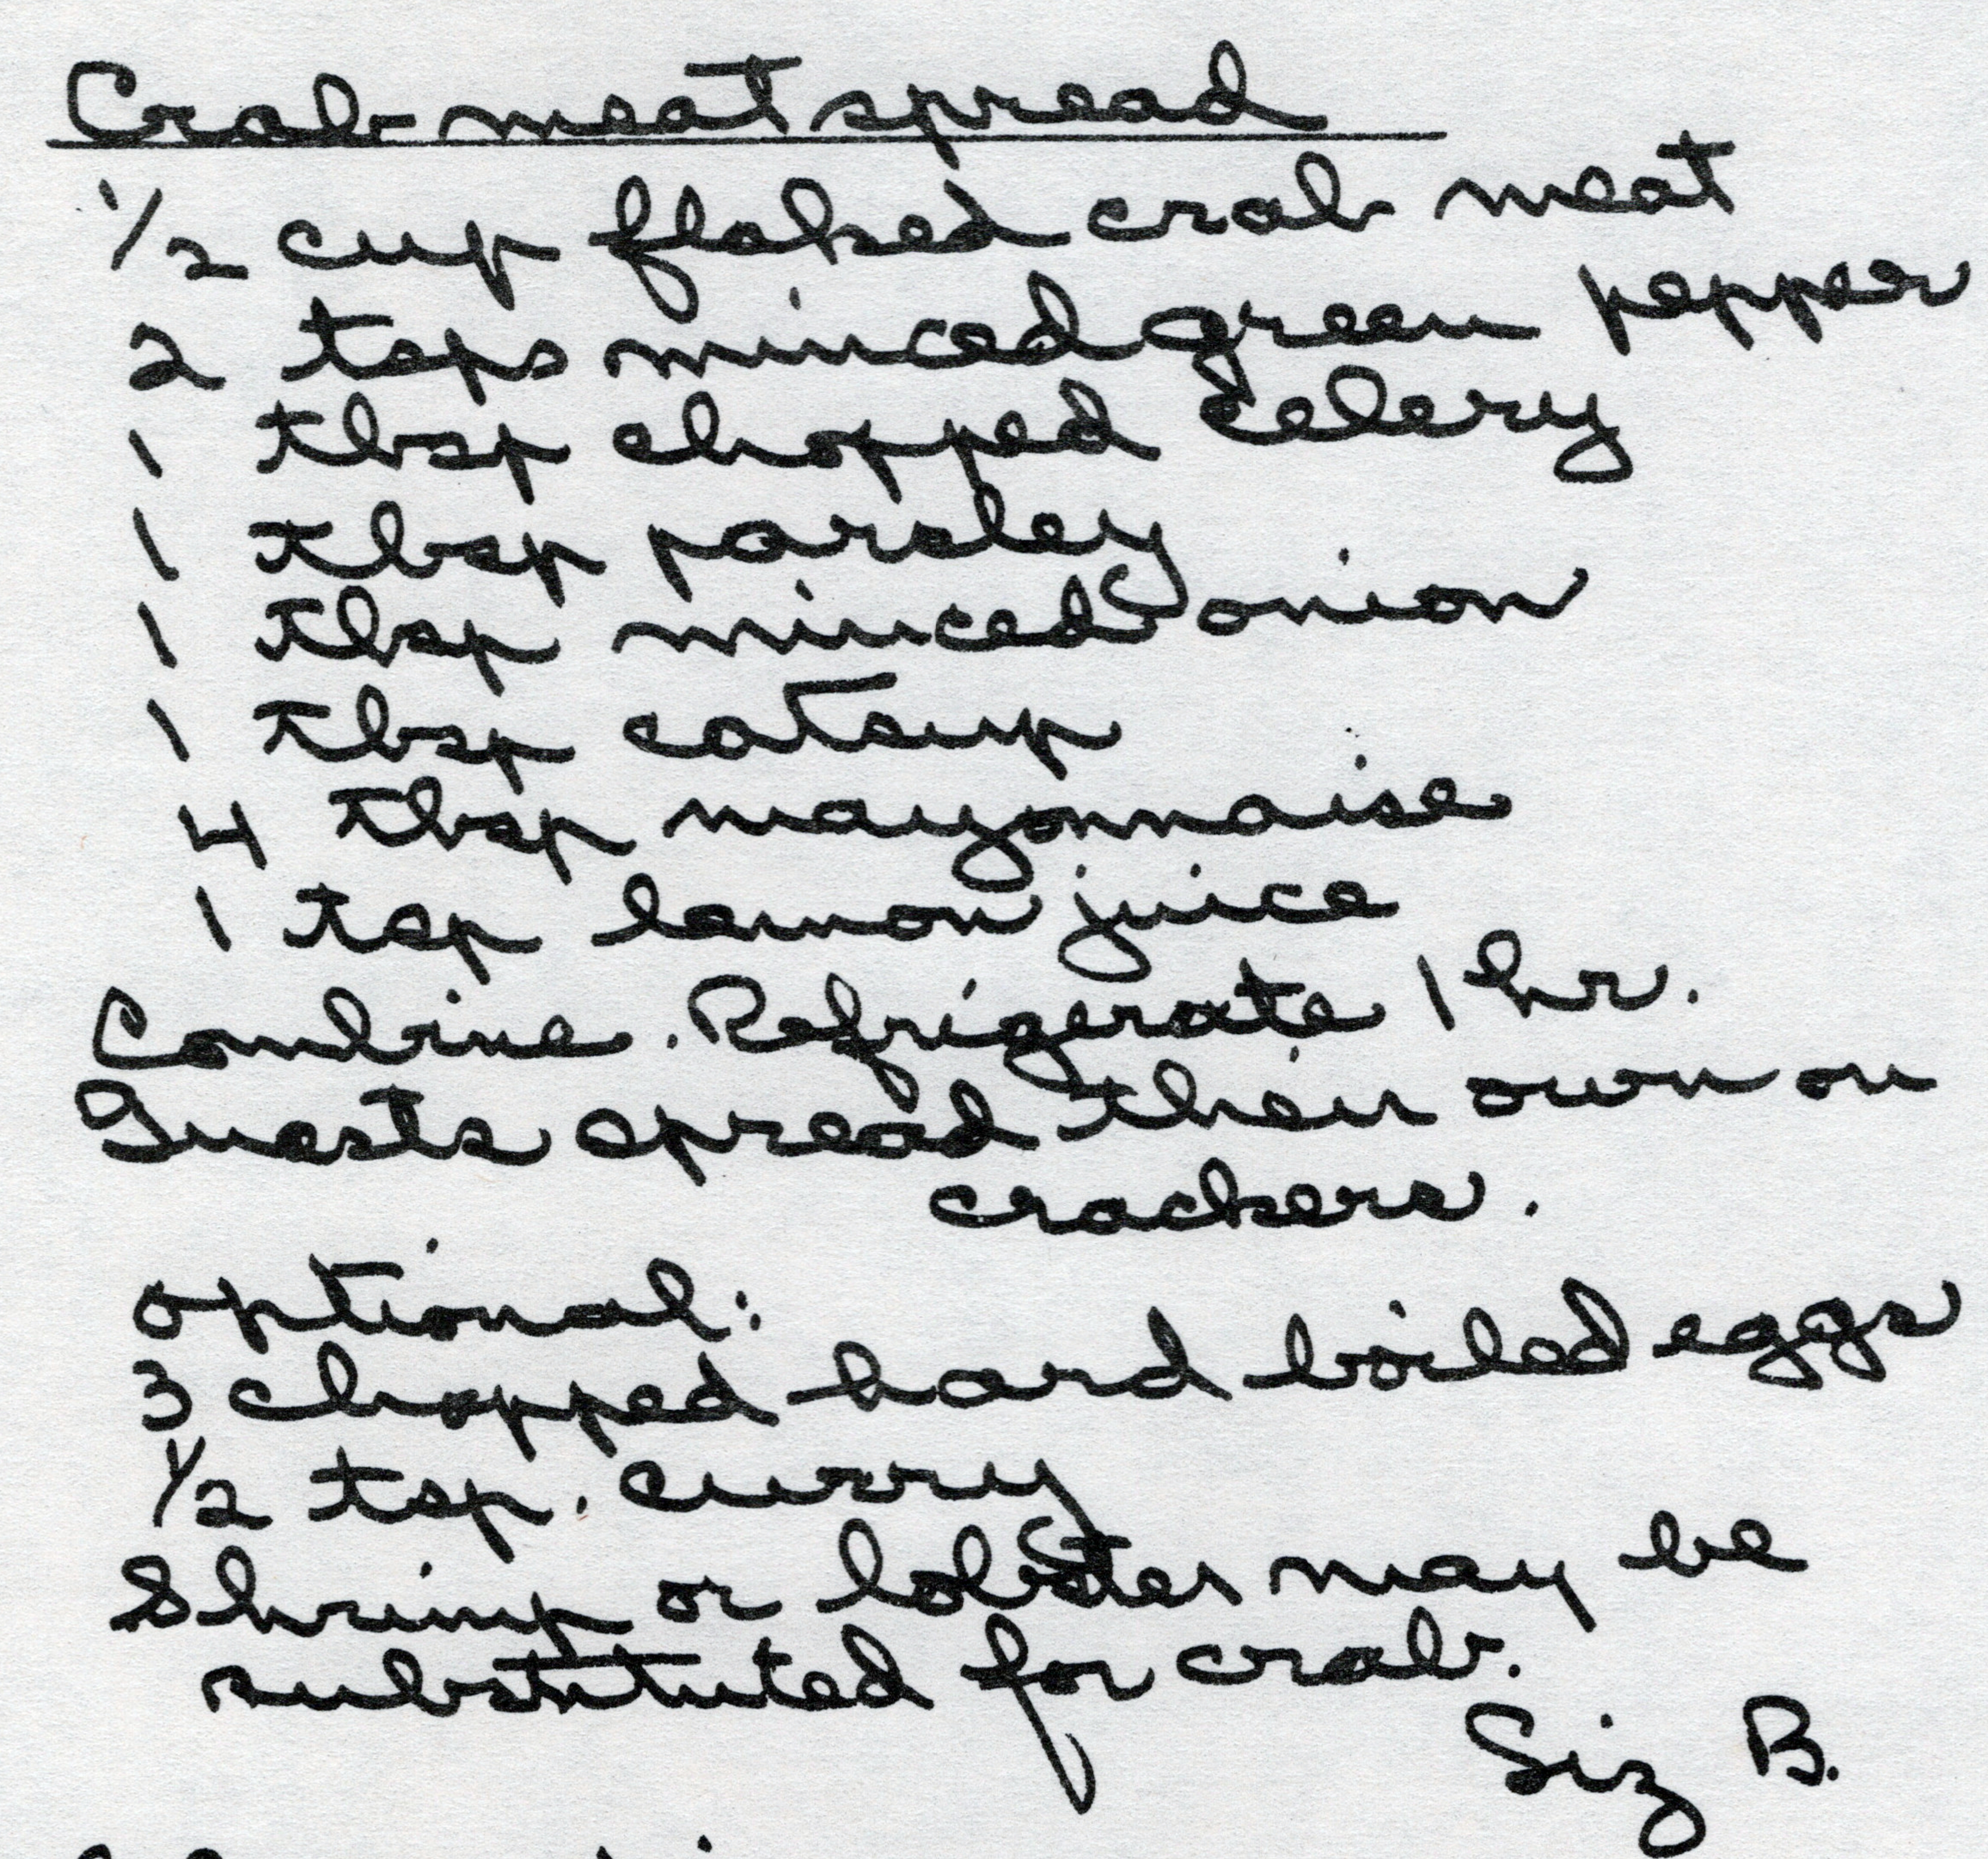 Crab meat spread
1/2 cup flaked crab meat
2 tsps minced green pepper
1 tbsp chopped celery
1 tbsp parsley
1 tbsp minced onion
1 tbsp catsup
4 tbsp mayonnaise
1 tsp lemon juice
Combine. Refrigerate 1 hr.
Guests spread their own on
crackers.
optional:
3 chopped hard boiled eggs
1/2 tsp. curry
Shrimp or lobster may be
substituted for crab.
Siz B.